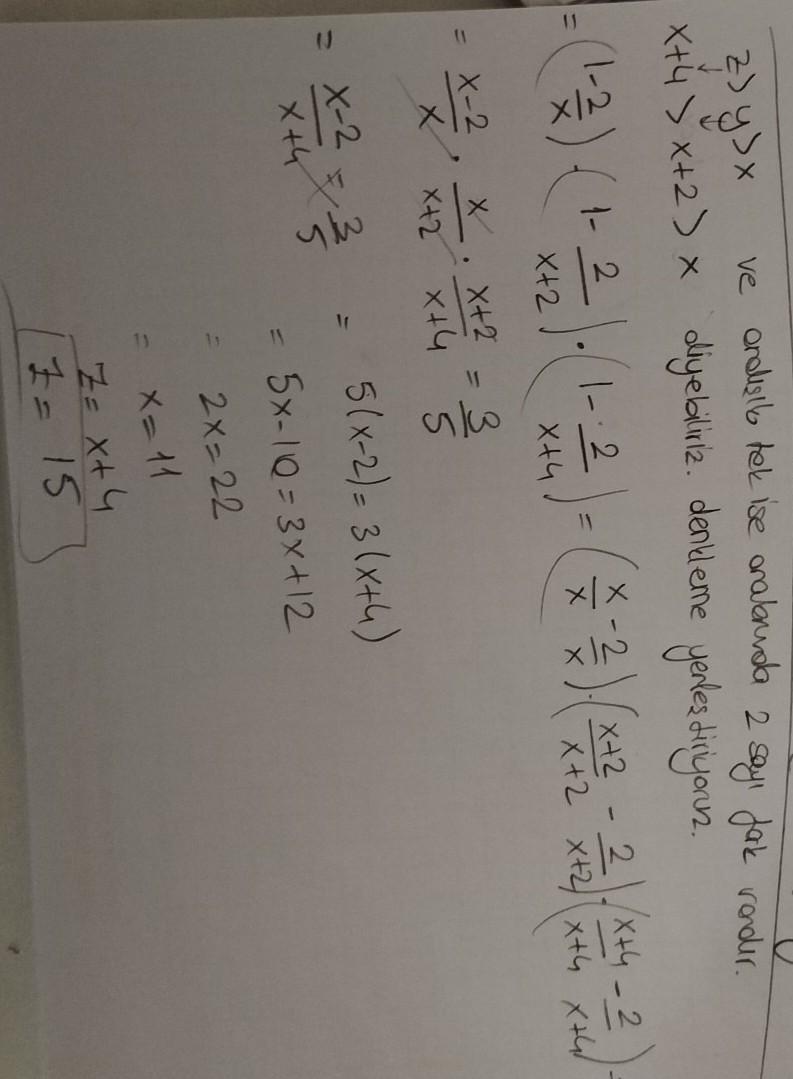 z > y > x ve ardışık tek ise aralarında 2 sayı fark vardır.
x+4 > x+2 > x diyebiliriz. denkleme yerleştiriyoruz.
= (1-2/x) · (1-2/x+2) · (1-2/x+4) = (x/x - 2/x) · (x+2/x+2 - 2/x+2) · (x+4/x+4 - 2/x+4)
= x-2/x · x/x+2 · x+2/x+4 = 3/5
= x-2/x+4 = 3/5 = 5(x-2) = 3(x+4)
= 5x-10 = 3x+12
= 2x = 22
= x = 11
z = x+4
z = 15